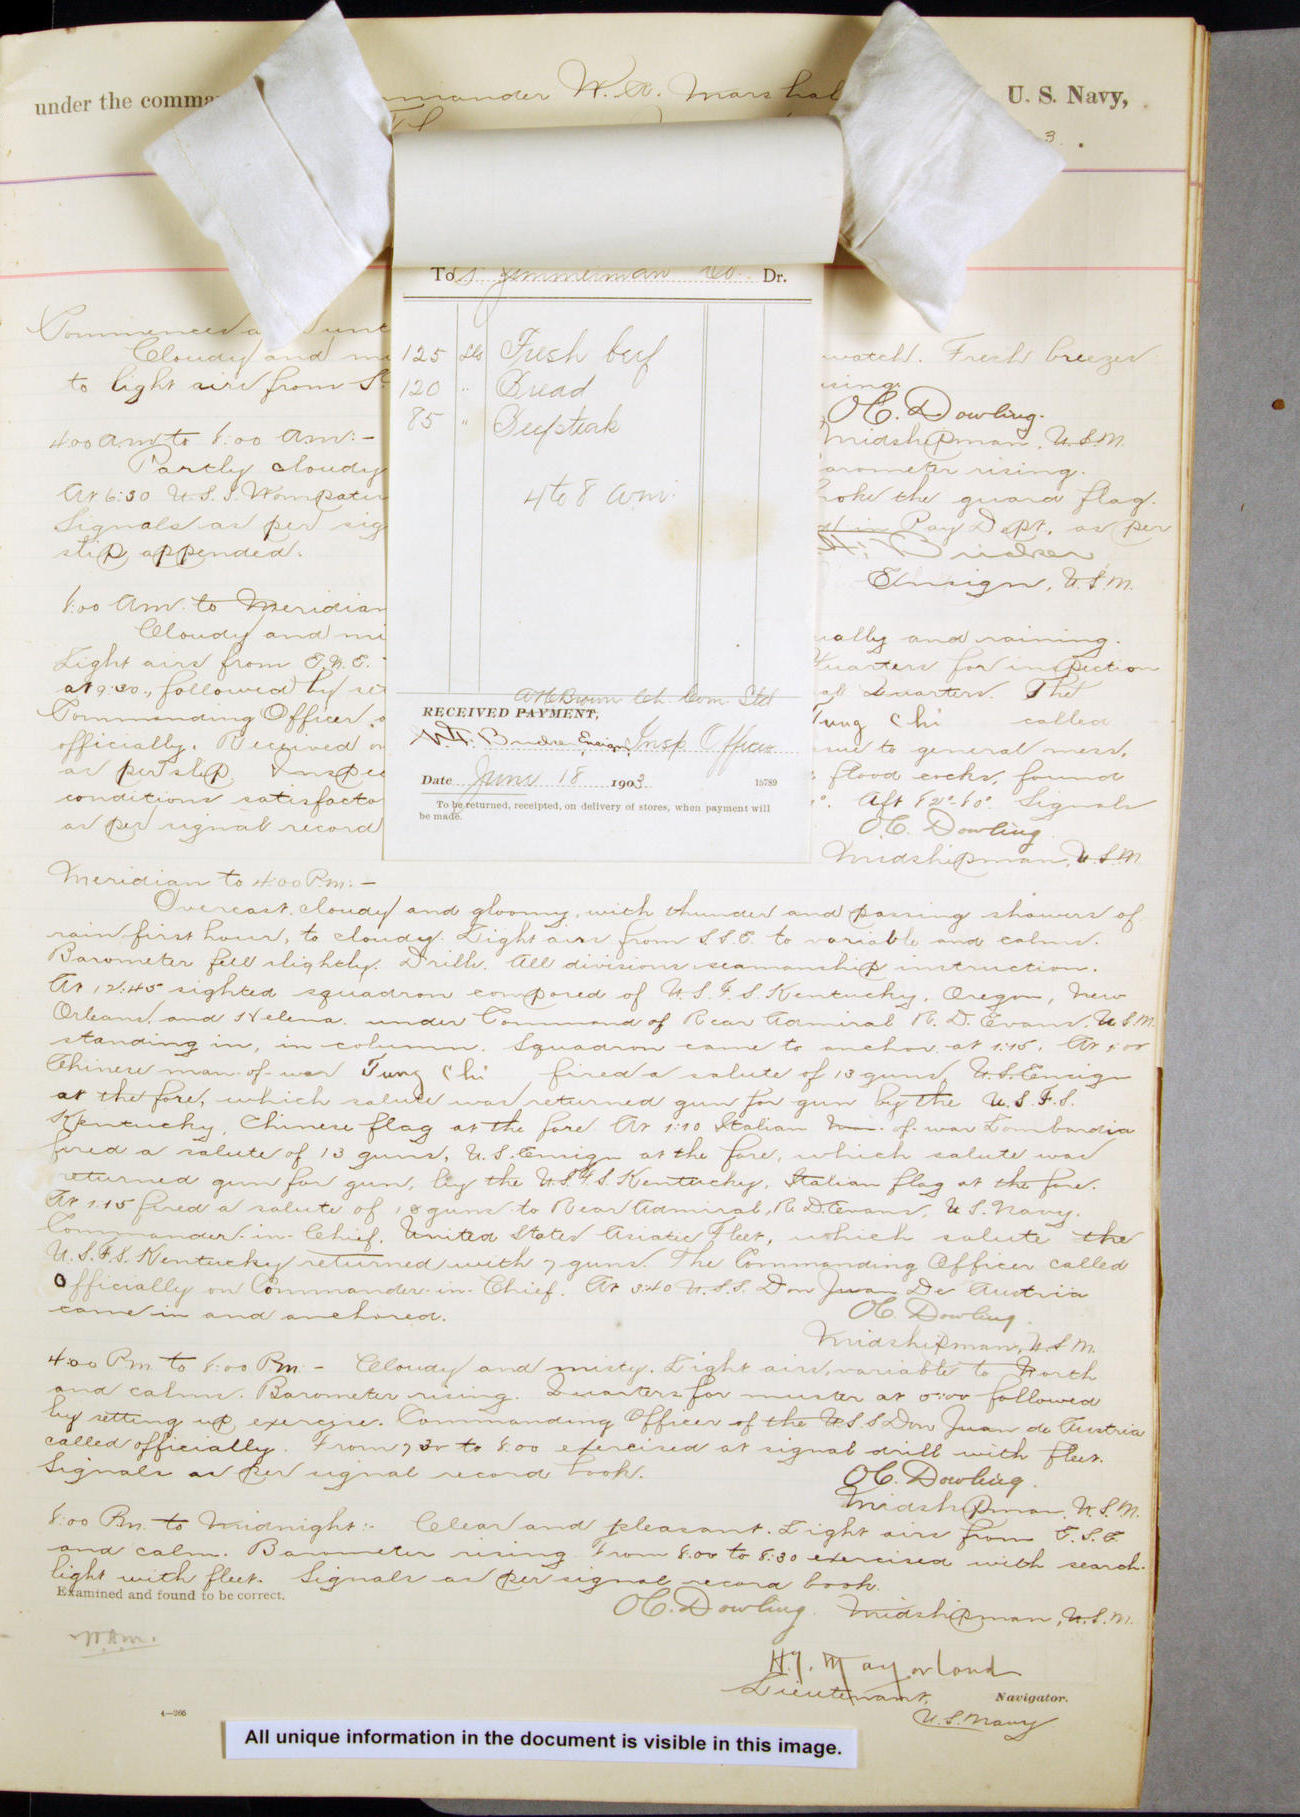 under the comma
mmander W. A. Marshal
U. S. Navy,
3.
To S. Zimmerman Co. Dr.
125 Lbs Fresh beef
120 " Bread
85 " Beefsteak
4 to 8 a.m.
A H Brown Ch. Com. Std
RECEIVED PAYMENT,
Ensign, Insp. Officer
Date June 18 1903
15789
To be returned, receipted, on delivery of stores, when payment will
be made.
Commences a unt
Cloudy and mi watch. Fresh breezes
to light airs from S. ising.
O.C. Dowling.
4:00 a.m. to 8:00 a.m:- Midshipman, U.S.N.
Partly cloudy arometer rising.
At 6:30 U.S.S. Wompatu roke the guard flag.
Signals as per sig in Pay Dept. as per
slip appended.
Ensign, U.S.N.
8:00 a.m. to Meridian
Cloudy and mi ually and raining.
Light airs from E.N.E. Quarters for inspection
at 9:30, followed by se Quarters. The
Commanding Officer Tung Chi called
officially. Received to general mess,
as per slip. Inspec flood cocks, found
conditions satisfacto Aft 82°-80° Signals
as per signal record O.C. Dowling
Midshipman, U.S.N.
Meridian to 4:00 P.m:-
Overcast, cloudy and gloomy, with thunder and passing showers of
rain first hour, to cloudy. Light airs from S.S.E. to variable and calms.
Barometer fell slightly. Drills. All divisions seamanship instruction.
At 12:45 sighted squadron composed of U.S.F.S. Kentucky, Oregon, New
Orleans, and Helena, under Command of Rear Admiral R. D. Evans, U.S.N.
standing in, in column. Squadron came to anchor at 1:15. At 1:00
Chinese man-of-war Tung Chi fired a salute of 13 guns, U.S. Ensign
at the fore, which salute was returned gun for gun by the U.S.F.S.
Kentucky, Chinese flag at the fore. At 1:10 Italian man-of-war Lombardia
fired a salute of 13 guns, U.S. Ensign at the fore, which salute was
returned gun for gun, by the U.S.F.S. Kentucky, Italian flag at the fore.
At 1:15 fired a salute of 13 guns to Rear Admiral, R. D. Evans, U.S. Navy,
Commander-in-Chief, United States Asiatic Fleet, which salute the
U.S.F.S. Kentucky returned with 7 guns. The Commanding Officer called
Officially on Commander-in-Chief. At 3:40 U.S.S. Don Juan De Austria
came in and anchored. O.C. Dowling.
Midshipman, U.S.N.
4:00 P.m. to 8:00 P.m - Cloudy and misty. Light airs, variable to North
and calms. Barometer rising. Quarters for muster at 5:00 followed
by setting up exercise. Commanding Officer of the U.S.S Don Juan de Austria
called officially. From 7:30 to 8:00 exercised at signal drill with fleet.
Signals as per signal record book. O.C. Dowling.
Midshipman, U.S.N.
8:00 P.m. to Midnight:- Clear and pleasant. Light airs from E.S.E.
and calm. Barometer rising. From 8:00 to 8:30 exercised with search
light with fleet. Signals as per signal record book.
Examined and found to be correct.
O.C. Dowling. Midshipman, U.S.N.
W.A.M.
Lieutenant,
Navigator.
U.S. Navy
4—266
All unique information in the document is visible in this image.